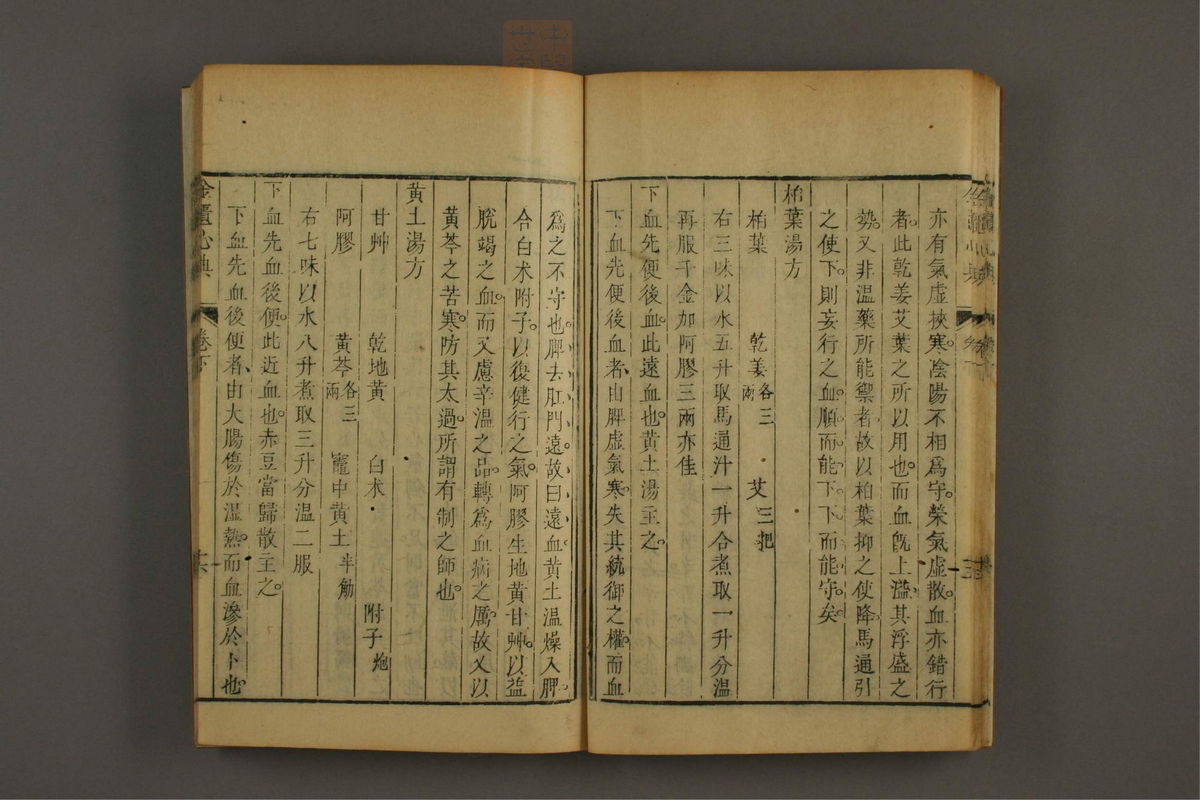 亦有氣虛挾寒。陰陽不相為守。榮氣虛散。血亦錯行
者。此乾姜艾葉之所以用也。而血旣上溢。其浮盛之
勢。又非溫藥所能禦者。故以柏葉抑之使降。馬通引
之使下。則妄行之血。順而能下。下而能守矣。
柏葉湯方
柏葉 乾姜各三兩 艾三把
右三味以水五升取馬通汁一升合煮取一升分溫
再服千金加阿膠三兩亦佳
下血先便後血。此遠血也。黃土湯主之。
下血先便後血者。由脾虛氣寒。失其統御之權。而血
爲之不守也。脾去肛門遠。故曰遠血。黃土溫燥入脾。
合白术附子。以復健行之氣。阿膠生地黃甘艸。以益
脫竭之血。而又慮辛溫之品。轉爲血病之厲。故又以
黃芩之苦寒。防其太過。所謂有制之師也。
黃土湯方
甘艸 乾地黃 白术 附子炮
阿膠 黃芩各三兩 竈中黃土半觔
右七味以水八升煮取三升分溫二服
下血先血後便。此近血也。赤豆當歸散主之。
下血先血後便者、由大腸傷於溼熱。而血滲於下也。
金匱心典 卷下